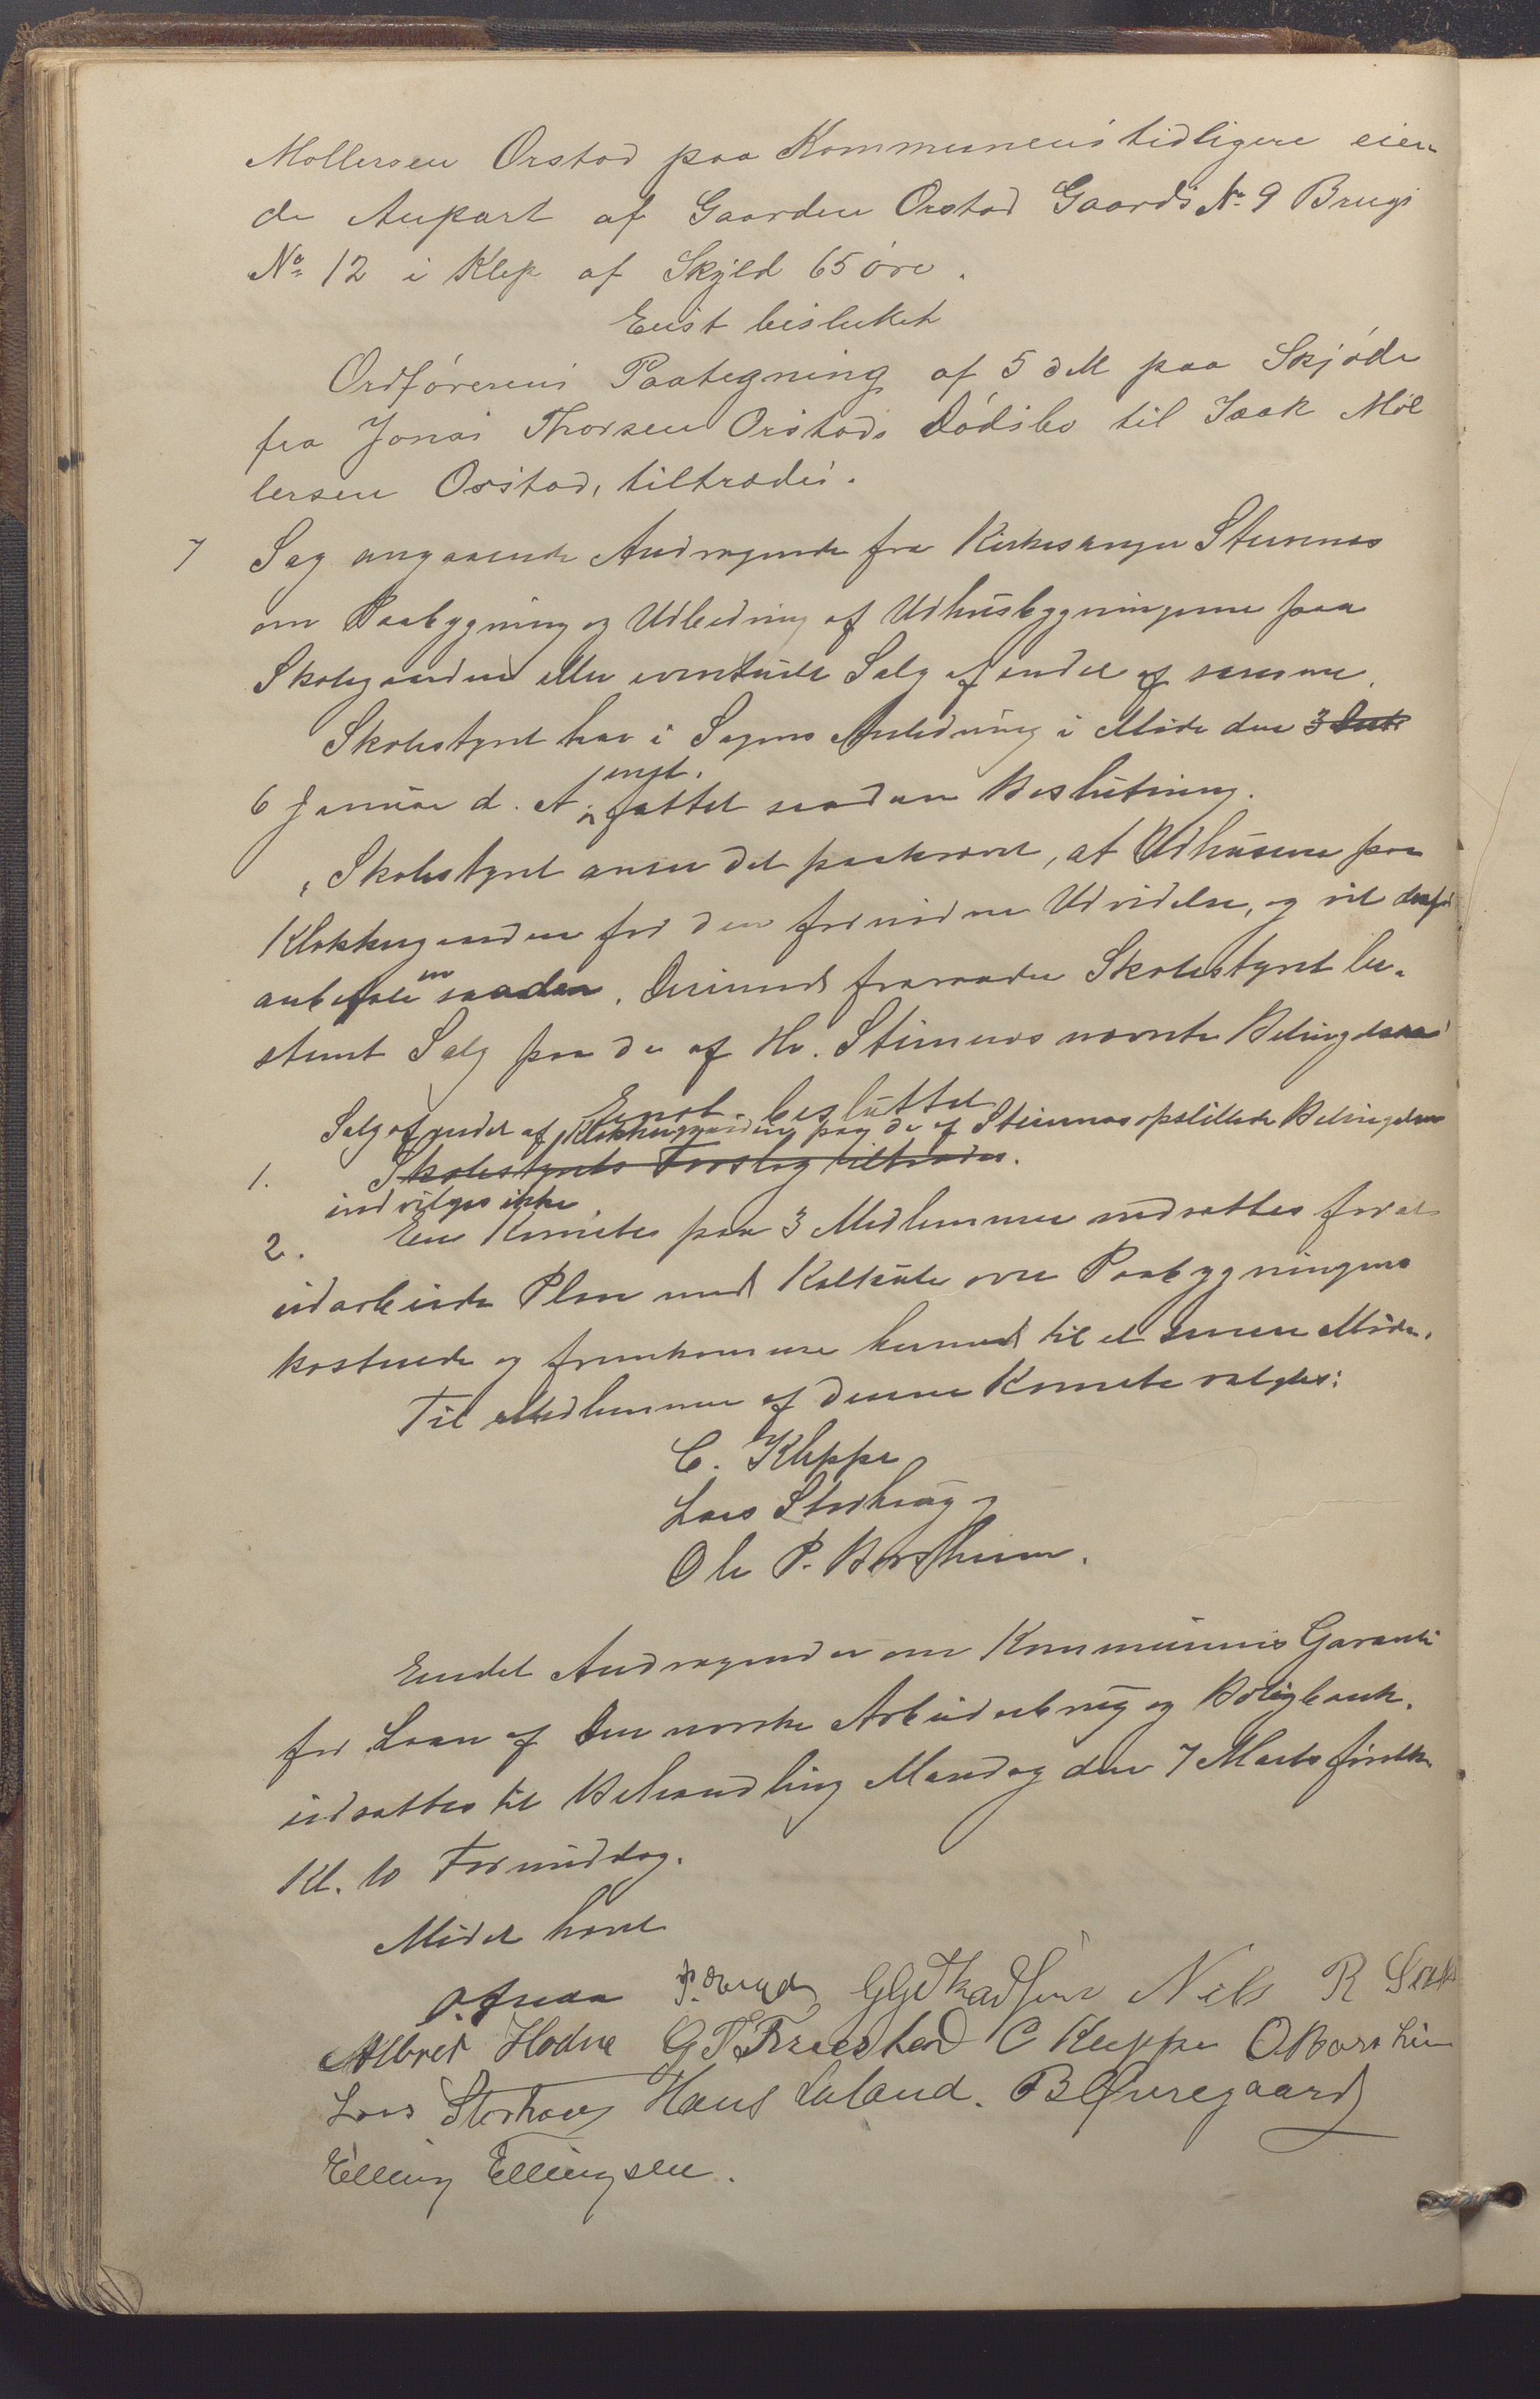 Mollersen Orstad paa Kommunens tidligere eien-
de Anpart af Gaarden Orstad Gaards No. 9 Brugs
No. 12 i Klep af Skyld 65 øre.
Enst besluttet
Ordførerens Paategning af 5 d M paa Skjøde
fra Jonas Thorsen Orstads Dødsbo til Isak Mol
lersen Orstad, tiltrædes.
7 Sag angaaende Andragende fra Kirkesanger Steinnes
om Paabygning og Udbedring af Udhusbygningerne paa
Skolegaarden eller eventuelt Salg af endel af samme.
Skolestyret har i Sagens Anledning i Møde den 3
enst.
6 Januar d. A. fattet saadan Beslutning.
"Skolestyret anser det paakrævet, at Udhusene paa
Klokkergaarden for den fornødne Udvidelse, og vil derfor
en
anbefale saadan. Derimod fraraader Skolestyret be-
stemt Salg paa de af Hr. Steinnes nævnte Betingelser"
Enst. besluttet
Salg af endel af Klokkergaarden paa de af Steinnes opstillede Betingelser
1. Skolestyrets Forslag tiltrædes.
indvilges ikke
2. En Komite paa 3 Medlemmer nedsættes for at
udarbeide Plan med Kalkule over Paabygningens
kostende og fremkomme hermed til et senere Møde.
Til Medlemmer af denne Komite valgtes:
C. Kleppe
Lars Storhaug og
Ole P. Borsheim.
Endel Andragender om Kommunens Garanti
for Laan af Den norske Arbeiderbrug og Boligbank.
udsættes til Behandling Mandag den 7 Marts førstk.
Kl. 10 Formiddag.
Mødet hævet
Nils R
Albret Hodne G T Friestad C Kleppe O Borsheim
Lars Storhaug Hans Laland. B Øvregaard
Elling Ellingsen.